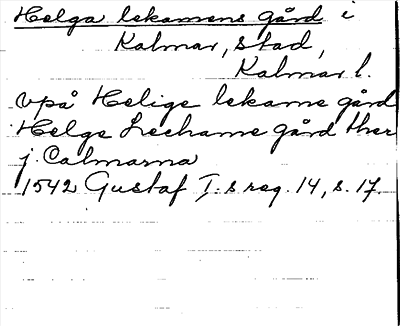 Helga lekamens gård i
Kalmar, stad,
Kalmar l.
vpå Helige lekame gård
Helge Lechame gård ther
j. Calmarna
1542 Gustaf I:s reg. 14, s. 17.